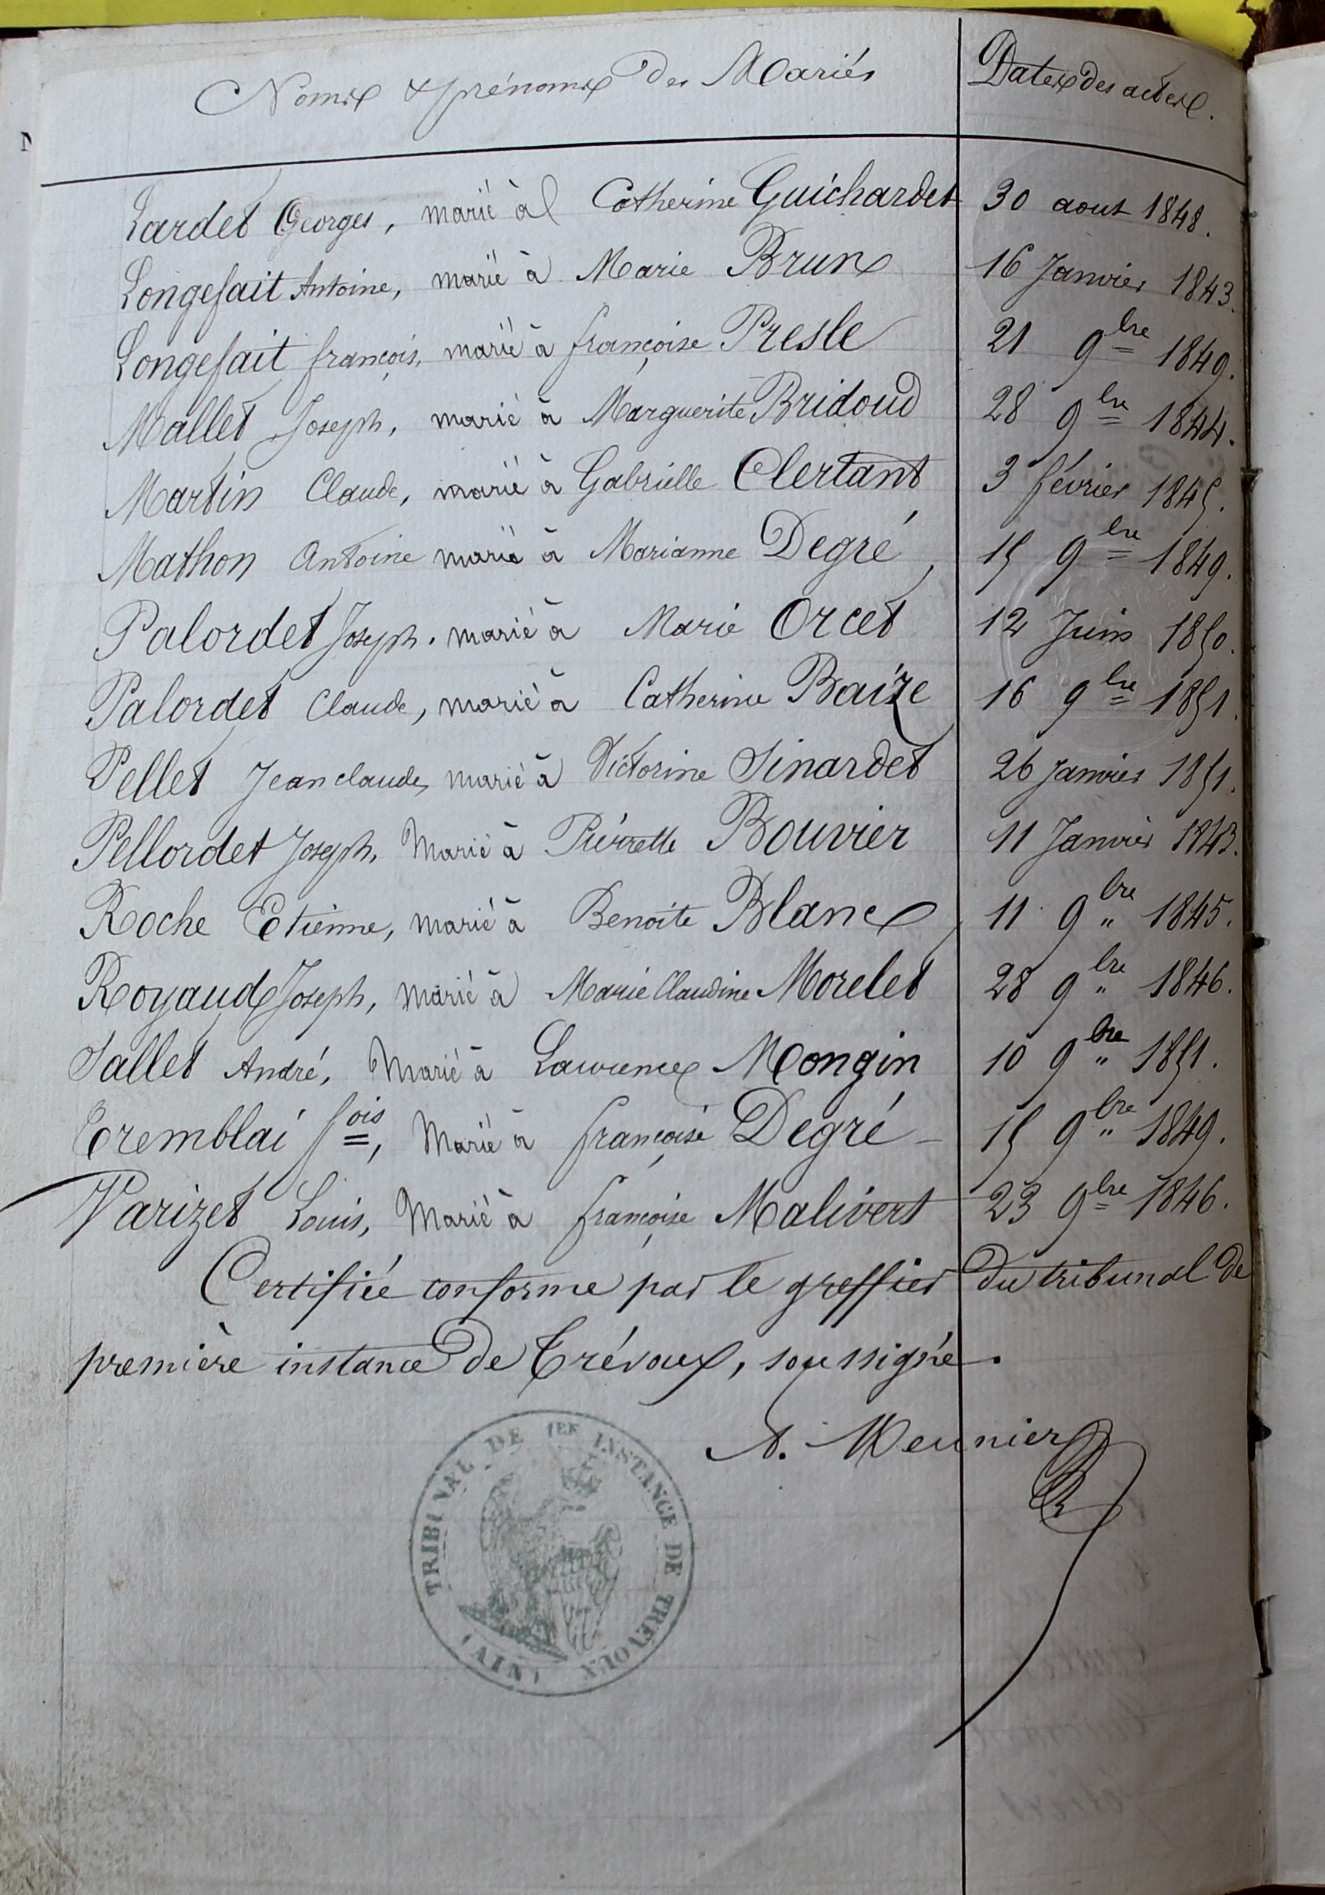 Noms & prénoms des Mariés Dates des actes.
Lardet Georges, marié à Catherine Guichardet 30 aout 1848.
Longefait Antoine, marié à Marie Brun 16 Janvier 1843.
Longefait françois, marié à françoise Presle 21 9bre 1849.
Mallet Joseph, marié à Marguerite Bridoud 28 9bre 1844.
Martin Claude, marié à Gabrielle Clertant 3 février 1845.
Mathon Antoine marié à Marianne Degré, 15 9bre 1849.
Palordet Joseph. marié à Marie Orcet 12 Juin 1850.
Palordet Claude, marié à Catherine Baize 16 9bre 1851.
Pellet Jeanclaude, marié à Victorine Sinardet 26 Janvier 1851.
Pellordet Joseph, Marié à Pierrette Bouvier 11 Janvier 1843.
Roche Etienne, marié à Benoite Blanc, 11 9bre 1845.
Royaud Joseph, marié à Marie Claudine Morelet 28 9bre 1846.
Sallet André, Marié à Laurence Mongin 10 9bre 1851.
Tremblai fois, Marié à françoise Degré - 15 9bre 1849.
Varizet Louis, Marié à françoise Malivert 23 9bre 1846.
Certifiée conforme par le greffier du tribunal de
première instance de Trévoux, soussigné.
A. Meunier
TRIBUNAL DE 1ER INSTANCE DE TREVOUX
(AIN)